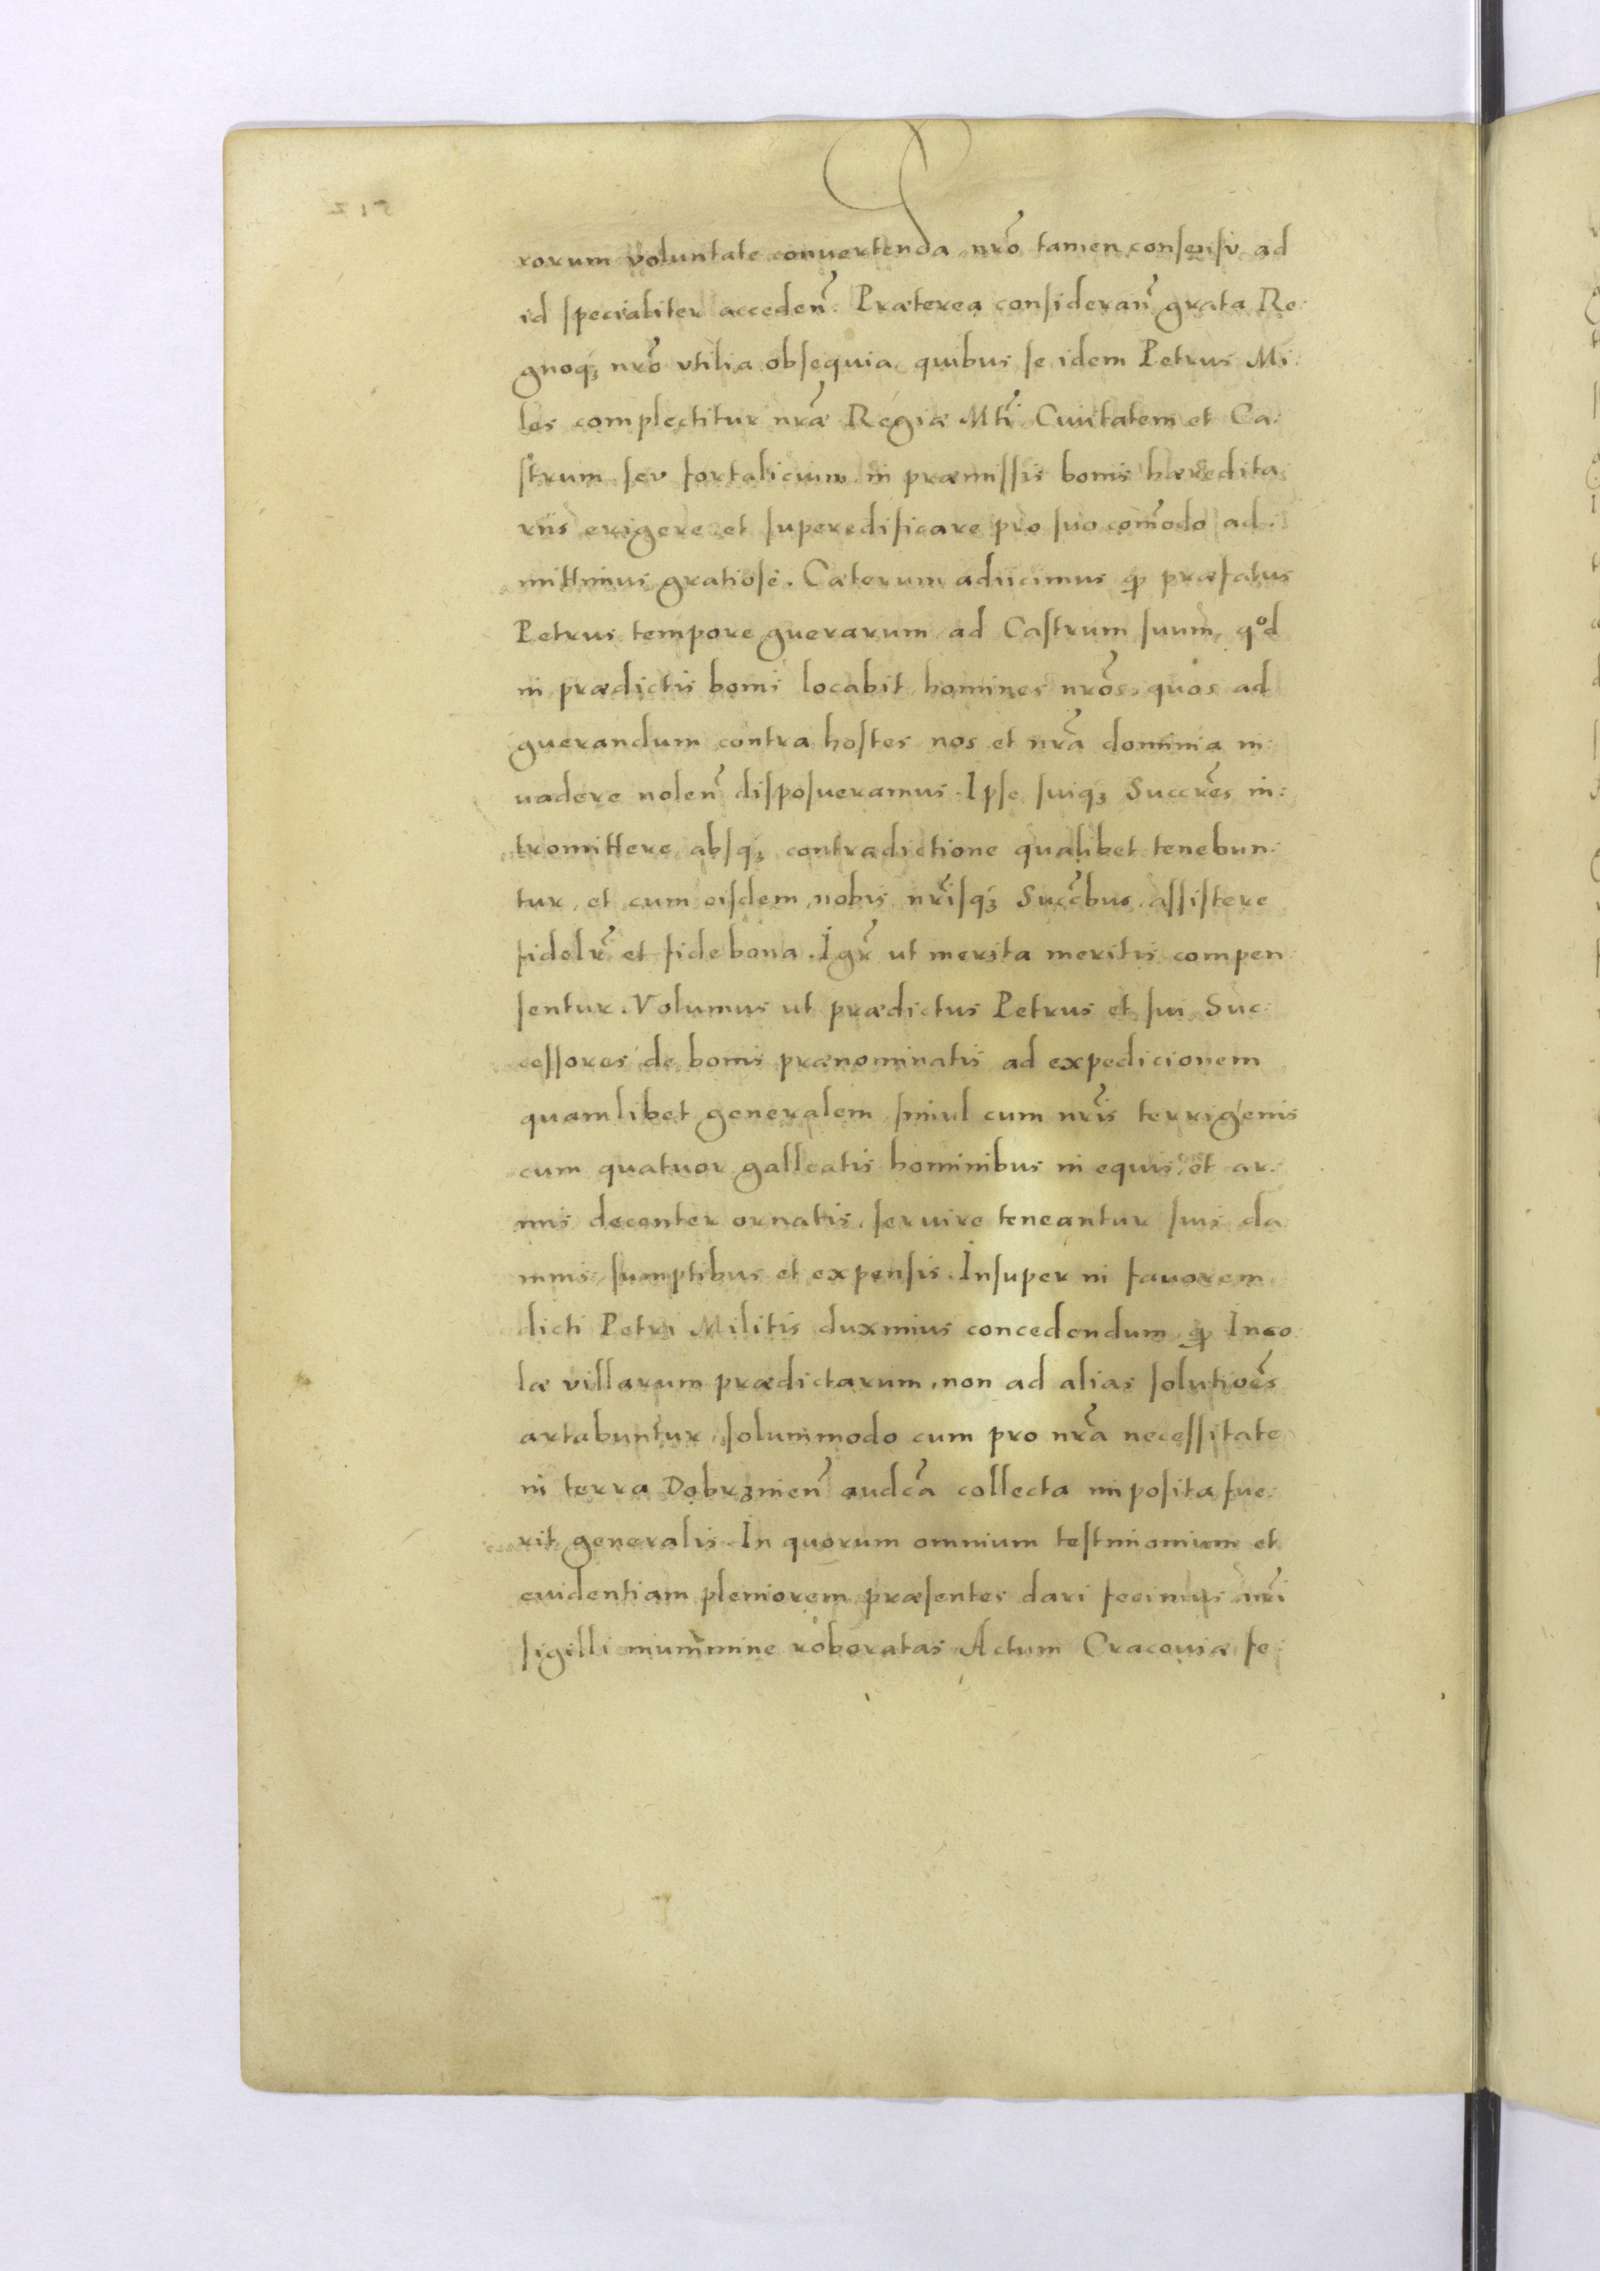 rorum voluntate conuertenda nr̃o tamen consensv ad
id specialiter acceden̄. Præterea consideran̄ grata Re:
gnoq́ꝫ nr̃o vtilia obsequia quibus se idem Petrus Mi:
les complectitur nr̃æ Regiæ Mti̇̃ Ciuitatem et Ca:
strum sev fortalicium in præmissis bonis hæredita
riis erigere et superedificare pro suo com̃odo ad:
mittimus gratiose. Cæterum adiicimus ꝙ præfatus
Petrus tempore guerarum ad Castrum suum, qͦd
in prædictis bonis locabit homines nr̃os, quos ad
guerandum contra hostes nos et nr̃a dominia in:
uadere nolen̄ disposueramus. Ipse suiqꝫ Succr̃es in:
tromittere absqꝫ contradictione qualibet tenebun:
tur, et cum eisdem nobis nr̃isqꝫ Succ̃bus assistere
fidelr̃ et fide bona. Igr̃ ut merita meritis compen
sentur. Volumus ut prædictus Petrus et sui Suc:
cessores de bonis prænominatis ad expedicionem
quamlibet generalem simul cum nr̃is terrigenis
cum quatuor galleatis hominibus in equis et ar:
mis decenter ornatis seruire teneantur suis da
mnis sumptibus et expensis. Insuper in fauorem
dicti Petri Militis duximus concedendum ꝙ Inco
læ villarum prædictarum, non ad alias solutiões
artabuntur, solummodo cum pro nr̃a necessitate
in terra Dobrznien̄ audc̃a collecta imposita fue:
rit generalis. In quorum omnium testimonium et
euidentiam pleniorem præsentes dari fecimus nr̃i
sigilli munimine roboratas Actum Cracouiæ fe: